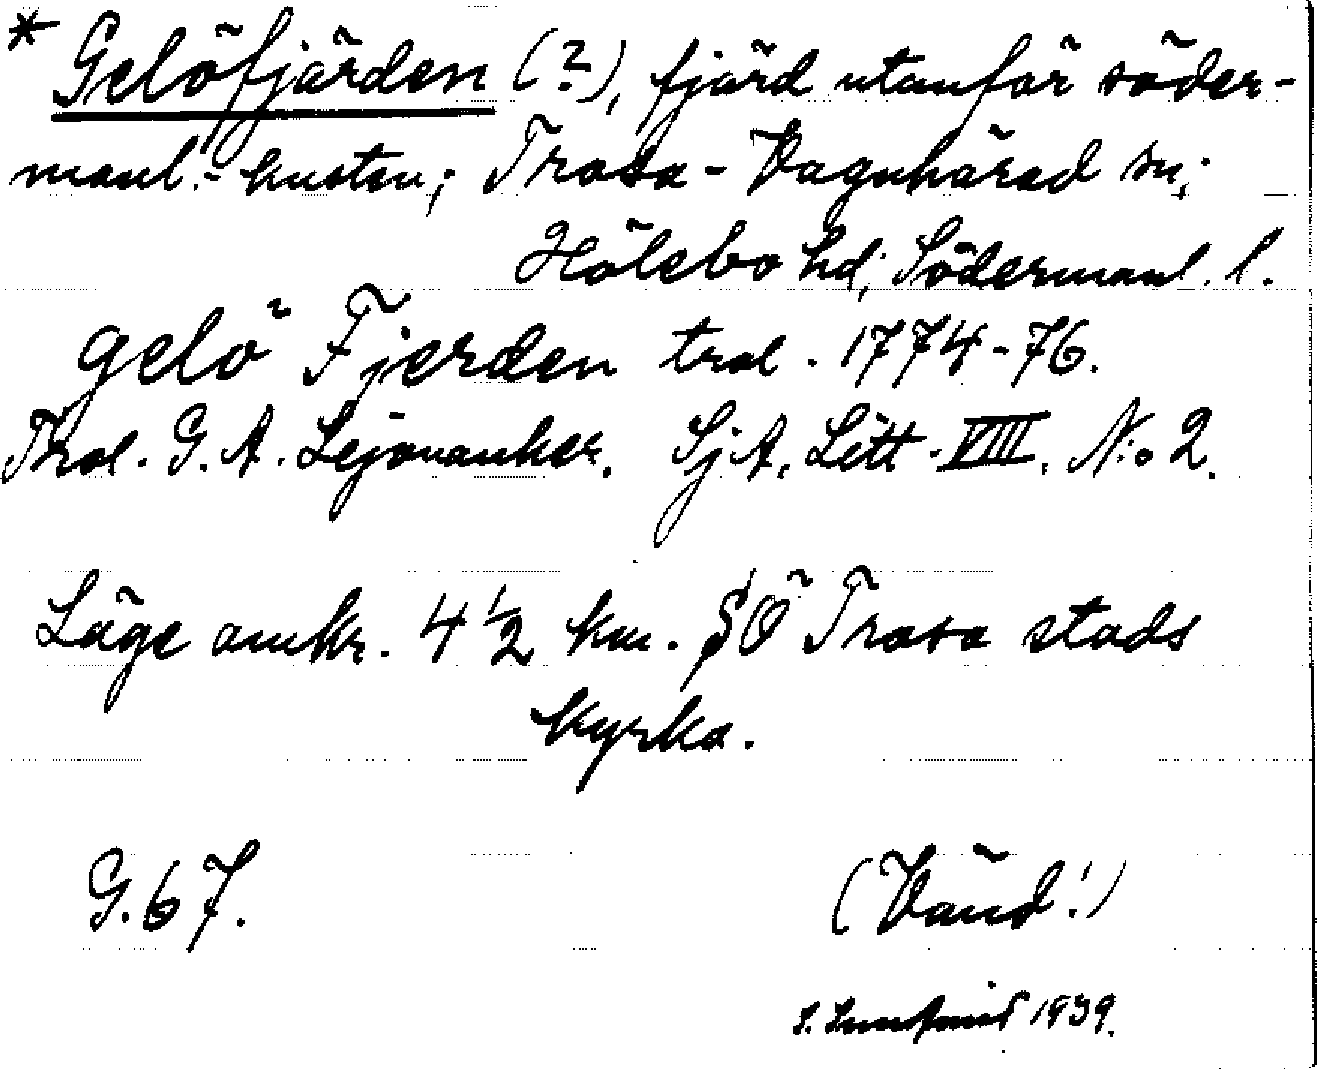 * Gelöfjärden (?), fjärd utanför söder-
manl.-kusten; Trosa-Vagnhärad sn;
Hölebo hd; Södermanl. l.
gelö Fjerden trol. 1774-76.
Trol. G. A. Lejonanker. SjA. Litt. VIII. N:o 2.
Läge omkr. 4 1/2 km. SÖ Trosa stads
kyrka.
G. 67.
(Vänd!)
1939.